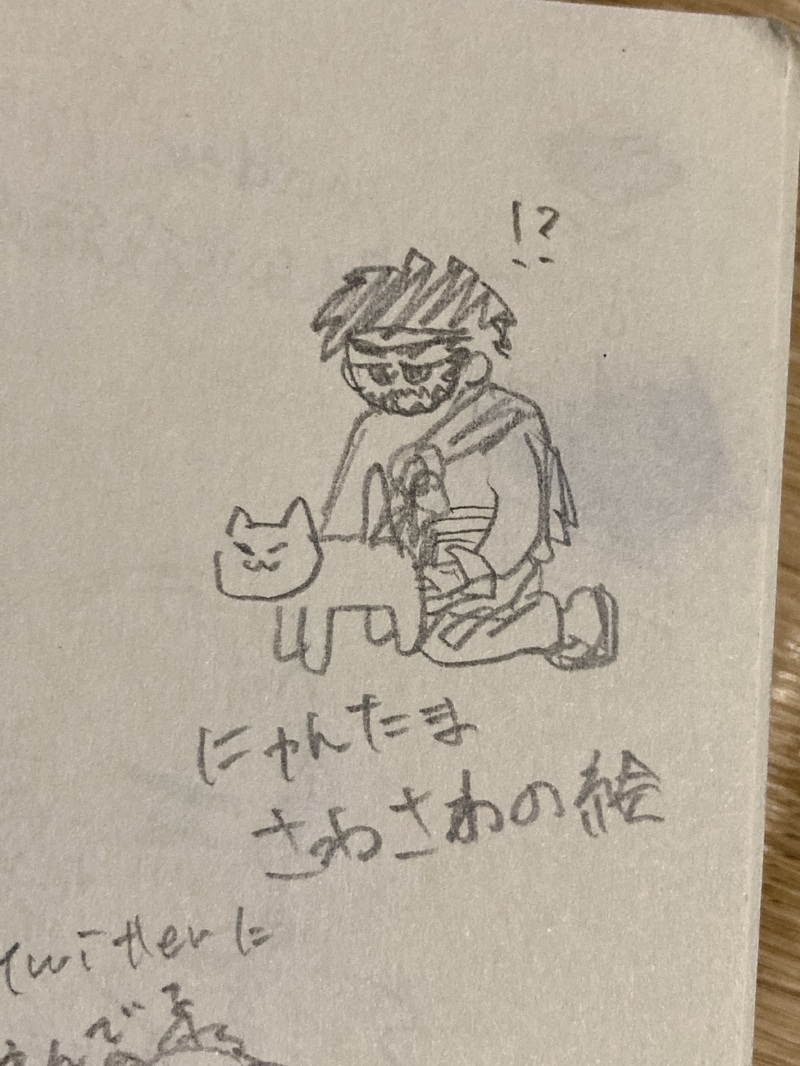 !?
にゃんたま
さわさわの絵
twitterに